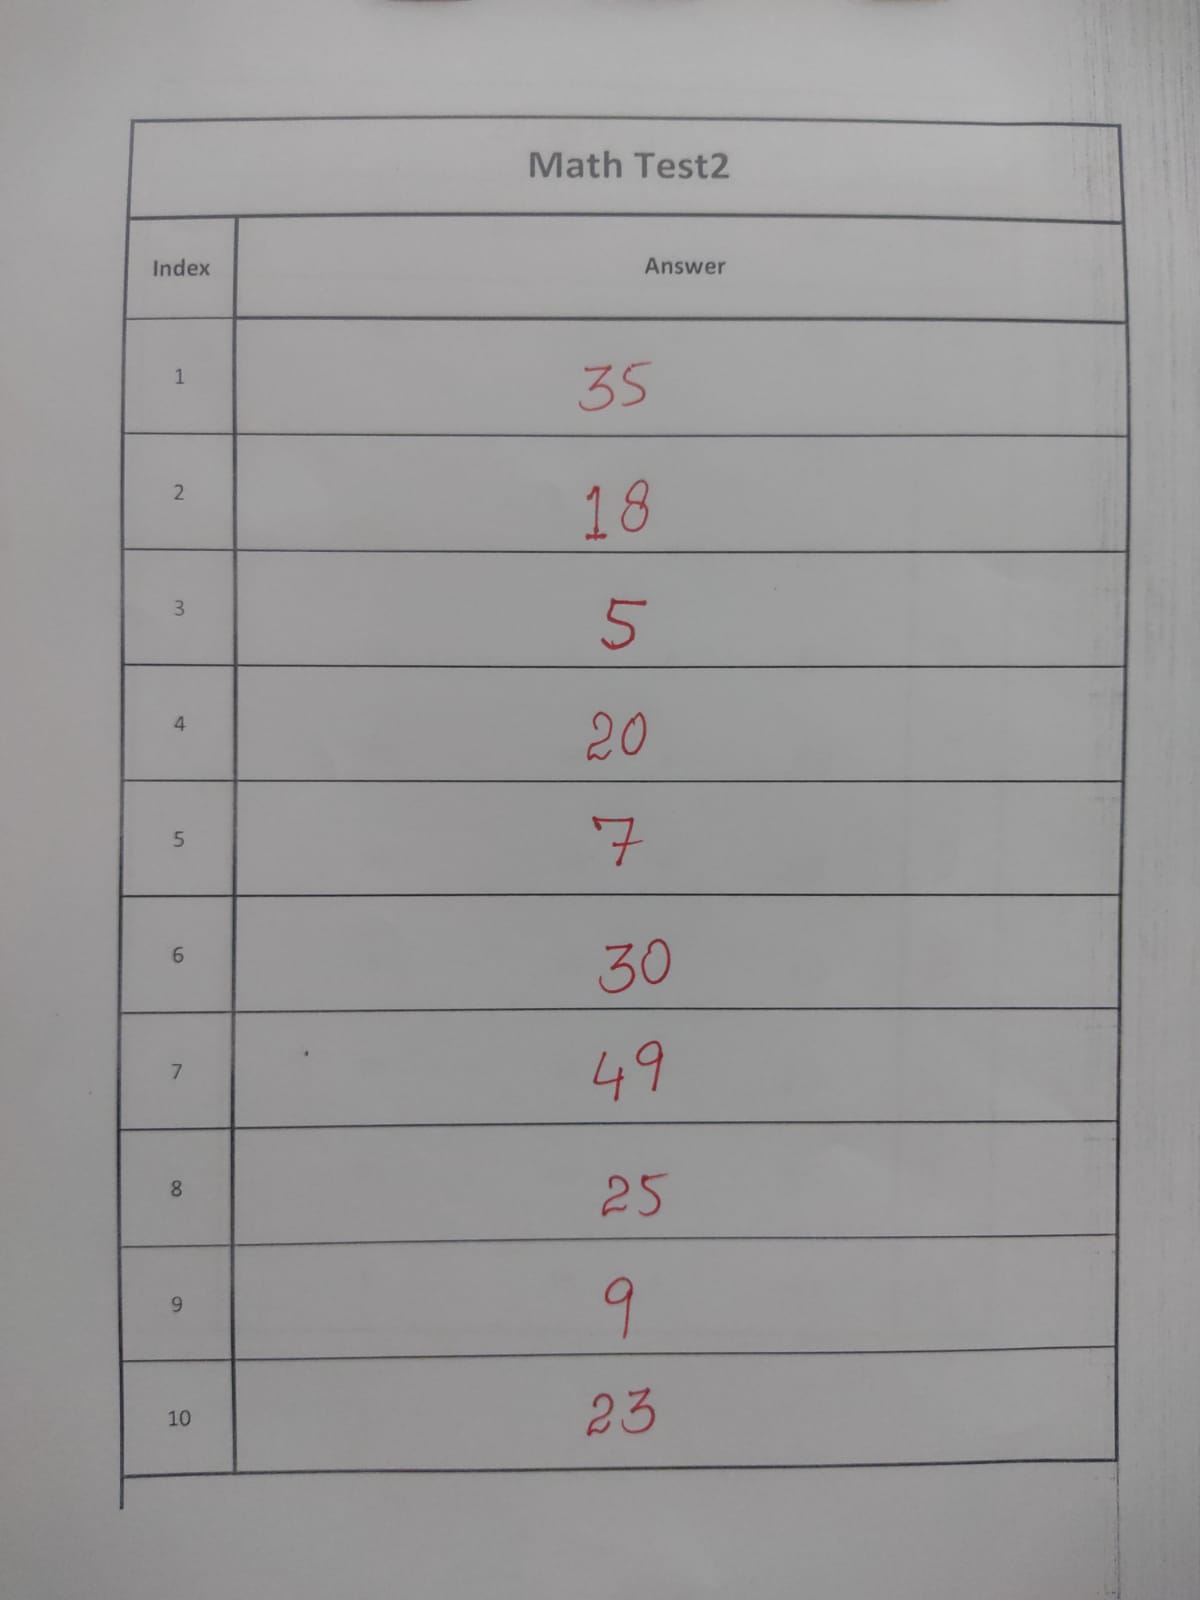 Math Test2
Index Answer
1 35
2 18
3 5
4 20
5 7
6 30
7 49
8 25
9 9
10 23